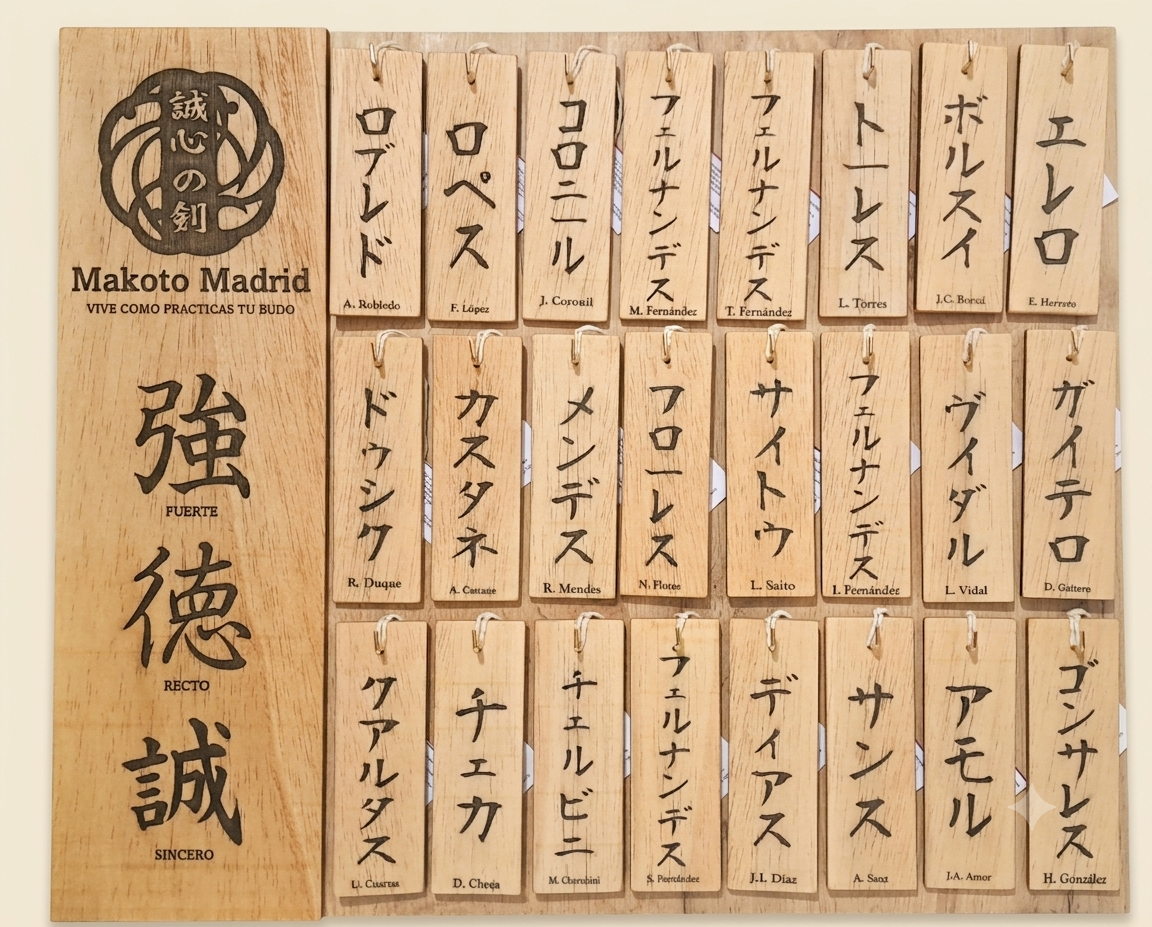 誠心の剣
Makoto Madrid
VIVE COMO PRACTICAS TU BUDO
強
FUERTE
徳
RECTO
誠
SINCERO
ロブレド
A. Robledo
ロペス
F. López
コロニール
J. Coronil
フェルナンデス
M. Fernández
フェルナンデス
T. Fernández
トーレス
L. Torres
ボルスイ
J.C.
エレロ
E.
ドゥシク
R. Duque
カスタネ
A.
メンデス
R. Mendes
フローレス
N.
サイトウ
L. Saito
フェルナンデス
I.
ヴィダル
L. Vidal
ガイテロ
D.
クアルダス
チェカ
D. Checa
チェルビニ
M. Cherubini
フェルナンデス
S.
ディアス
J.I. Díaz
サンス
A.
アモル
J.A. Amor
ゴンサレス
H. González